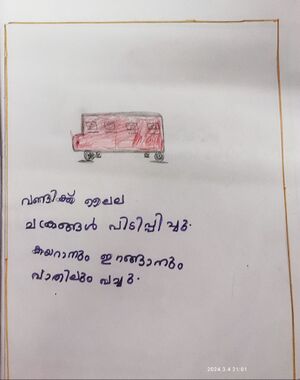 വണ്ടിക്ക് നല്ല
ചക്രങ്ങൾ പിടിപ്പിച്ചു.
കയറാനും ഇറങ്ങാനും
വാതിലും വച്ചു.
2024.3.4 21:01